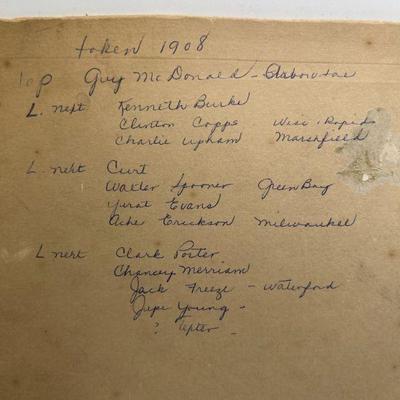 taken 1908
top Guy McDonald - Arbovitae
L. next Kenneth Burke
Clinton Capps Wisc. Rapids
Charlie Upham Marshfield
L. next Curt
Walter Spooner Green Bay
Evans
Ache Erickson Milwaukee
L next Clark Porter
Chancey Merriam
Jack Freeze - Waterford
Young -
? Apter -